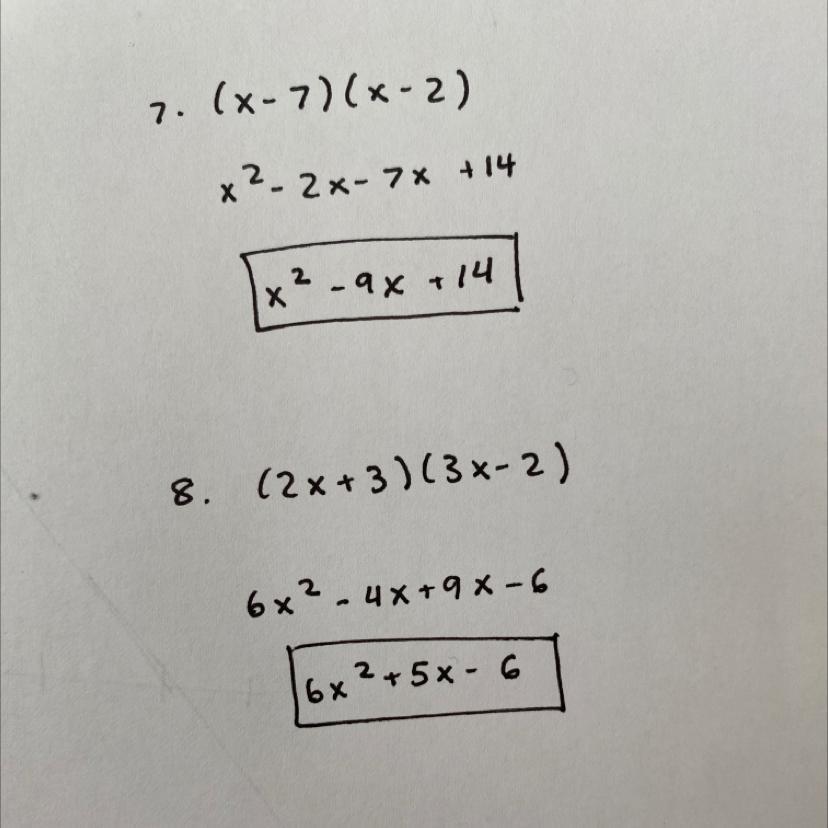 7. (x-7)(x-2)
x²-2x-7x +14
x² -9x +14
8. (2x+3)(3x-2)
6x² -4x+9x-6
6x²+5x- 6